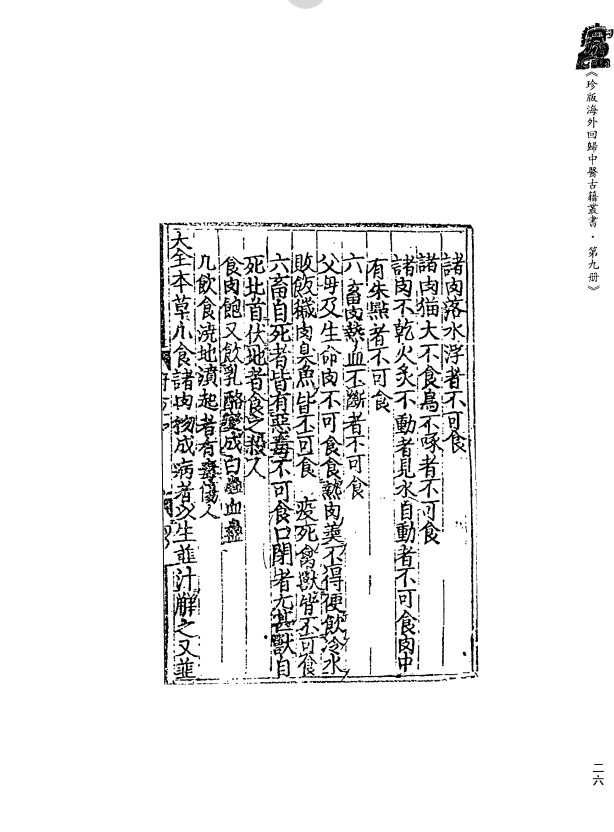 《珍版海外回歸中醫古籍叢書·第九册》
諸肉落水浮者不可食
諸肉猫犬不食鳥不啄者不可食
諸肉不乾火炙不動者見水自動者不可食肉中
有朱點者不可食
六畜肉熱血不斷者不可食
父母及生命肉不可食食熱肉羹不得便飲冷水
敗飯穢肉臭魚皆不可食 疫死禽獸皆不可食
六畜自死者皆有惡毒不可食口閉者尤甚獸自
死北首伏地者食之殺人
食肉飽又飲乳酪變成白蟲血蠱
凡飲食澆地濆起者有毒傷人
大全本草凡食諸肉物成病者必生韮汁解之又韮
二六